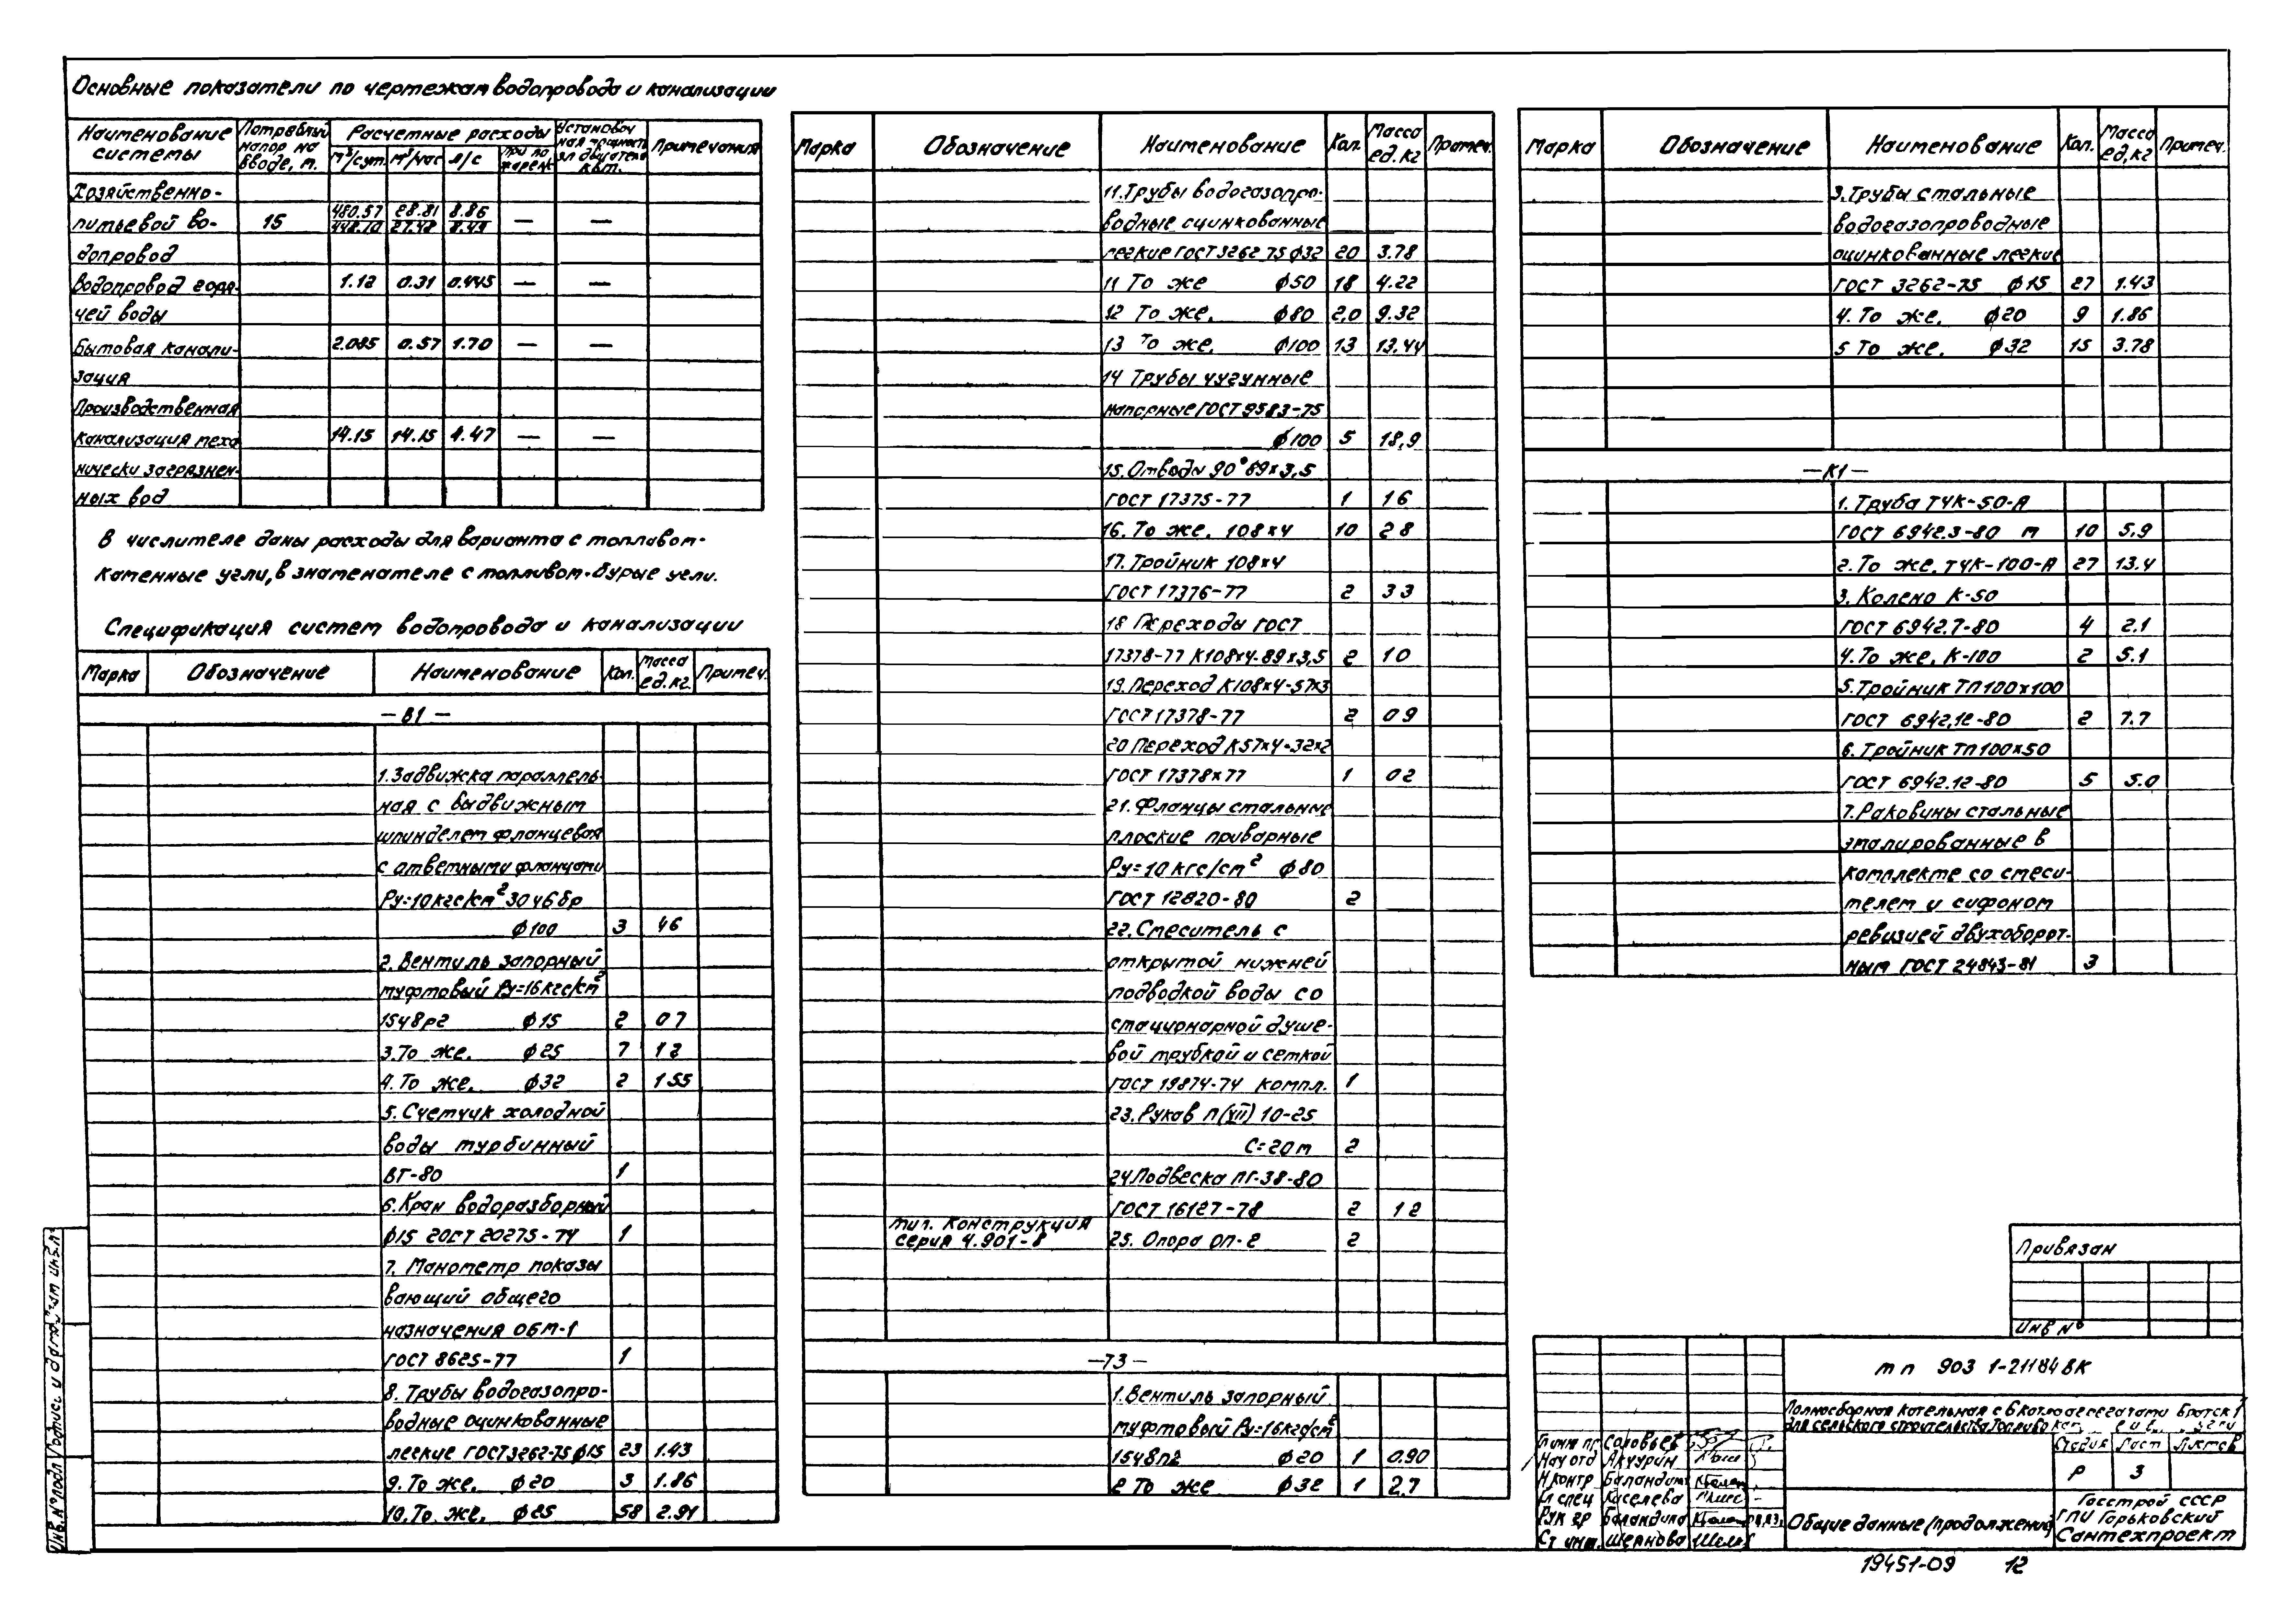 Основные показатели по чертежам водопровода и канализации
Наименование системы | Потребный напор на вводе, м. | Расчетные расходы | Примечания
м³/сут. | м³/час | л/с | при пожаре
Хозяйственно-
питьевой во- 15 480.57 28.81 8.86 — —
27.48
допровод
Водопровод горя- 1.12 0.31 0.445 — —
чей воды
Бытовая канали- 2.085 0.57 1.70 — —
зация
Производственная
канализация меха 14.15 14.15 4.47 — —
нически загрязнен-
ных вод
В числителе даны расходы для варианта с топливом-
каменные угли, в знаменателе с топливом-бурые угли.
Спецификация систем водопровода и канализации
Марка | Обозначение | Наименование | Кол. | Масса ед.кг. | Примеч.
— В1 —
1. Задвижка параллель-
ная с выдвижным
шпинделем фланцевая
с ответными фланцами
Ру=10кгс/см² 30ч6бр
ф100 3 46
2. Вентиль запорный
муфтовый Ру=16кгс/см²
15ч8р2 ф15 2 0 7
3. То же. ф25 7 1 2
4. То же. ф32 2 1 55
5. Счетчик холодной
воды турбинный
ВТ-80 1
6. Кран водоразборный
ф15 ГОСТ 20275-74 1
7. Манометр показы
вающий общего
назначения ОБМ-1
ГОСТ 8625-77 1
8. Трубы водогазопро-
водные оцинкованные
легкие ГОСТ 3262-75 ф15 23 1.43
9. То же. ф20 3 1.86
10. То же. ф25 58 2.91
Марка | Обозначение | Наименование | Кол. | Масса ед.кг | Примеч.
11. Трубы водогазопро-
водные оцинкованные
легкие ГОСТ 3262 75 ф32 20 3.78
11 То же ф50 18 4.22
12 То же. ф80 2,0 9.32
13 То же. ф100 13 13.44
14 Трубы чугунные
напорные ГОСТ 9583-75
ф100 5 18,9
15. Отводы 90° 89х3,5
ГОСТ 17375-77 1 1 6
16. То же. 108х4 10 2 8
17. Тройник 108х4
ГОСТ 17376-77 2 3 3
18 Переходы ГОСТ
17378-77 К108х4-89х3,5 2 1 0
19. Переход К108х4-57х3
ГОСТ 17378-77 2 0 9
20 Переход К57х4-32х2
ГОСТ 17378х77 1 0 2
21. Фланцы стальные
плоские приварные
Ру=10 кгс/см² ф80
ГОСТ 12820-80 2
22. Смеситель с
открытой нижней
подводкой воды со
стационарной душе-
вой трубкой и сеткой
ГОСТ 19874-74 компл. 1
23. Рукав П(VII) 10-25
С=20 м 2
24 Подвеска ПГ-38-80
ГОСТ 16127-78 2 1 2
тип. конструкция
серия 4.901-8 25. Опора ОП-2 2
—Т3—
1. Вентиль запорный
муфтовый Ру=16кгс/см²
15ч8п2 ф20 1 0.90
2 То же ф32 1 2,7
Марка | Обозначение | Наименование | Кол. | Масса ед.кг | Примеч.
3. Трубы стальные
водогазопроводные
оцинкованные легкие
ГОСТ 3262-75 ф15 27 1.43
4. То же. ф20 9 1.86
5 То же. ф32 15 3.78
—К1—
1. Труба ТЧК-50-А
ГОСТ 6942.3-80 м 10 5.9
2. То же. ТЧК-100-А 27 13.4
3. Колено К-50
ГОСТ 6942.7-80 4 2.1
4. То же. К-100 2 5.1
5. Тройник ТП 100х100
ГОСТ 6942.12-80 2 7.7
6. Тройник ТП 100х50
ГОСТ 6942.12-80 5 5.0
7. Раковины стальные
эмалированные в
комплекте со смеси-
телем и сифоном
ревизией двухоборот-
ным ГОСТ 24843-81 3
Привязан
Инв №
тп 903 1-211 84 ВК
Полносборная котельная с 6 котлоагрегатами Братск 1
для сельского строительства
Стадия | Лист | Листов
Р 3
Соловьев
Нач отд Акчурин
Н.контр Баландина
Гл спец Киселева
Рук гр Баландина
Ст инж. Шернова
Общие данные (продолжение)
Госстрой СССР
ГПИ Горьковский
Сантехпроект
Инв. № подл
19451-09 12